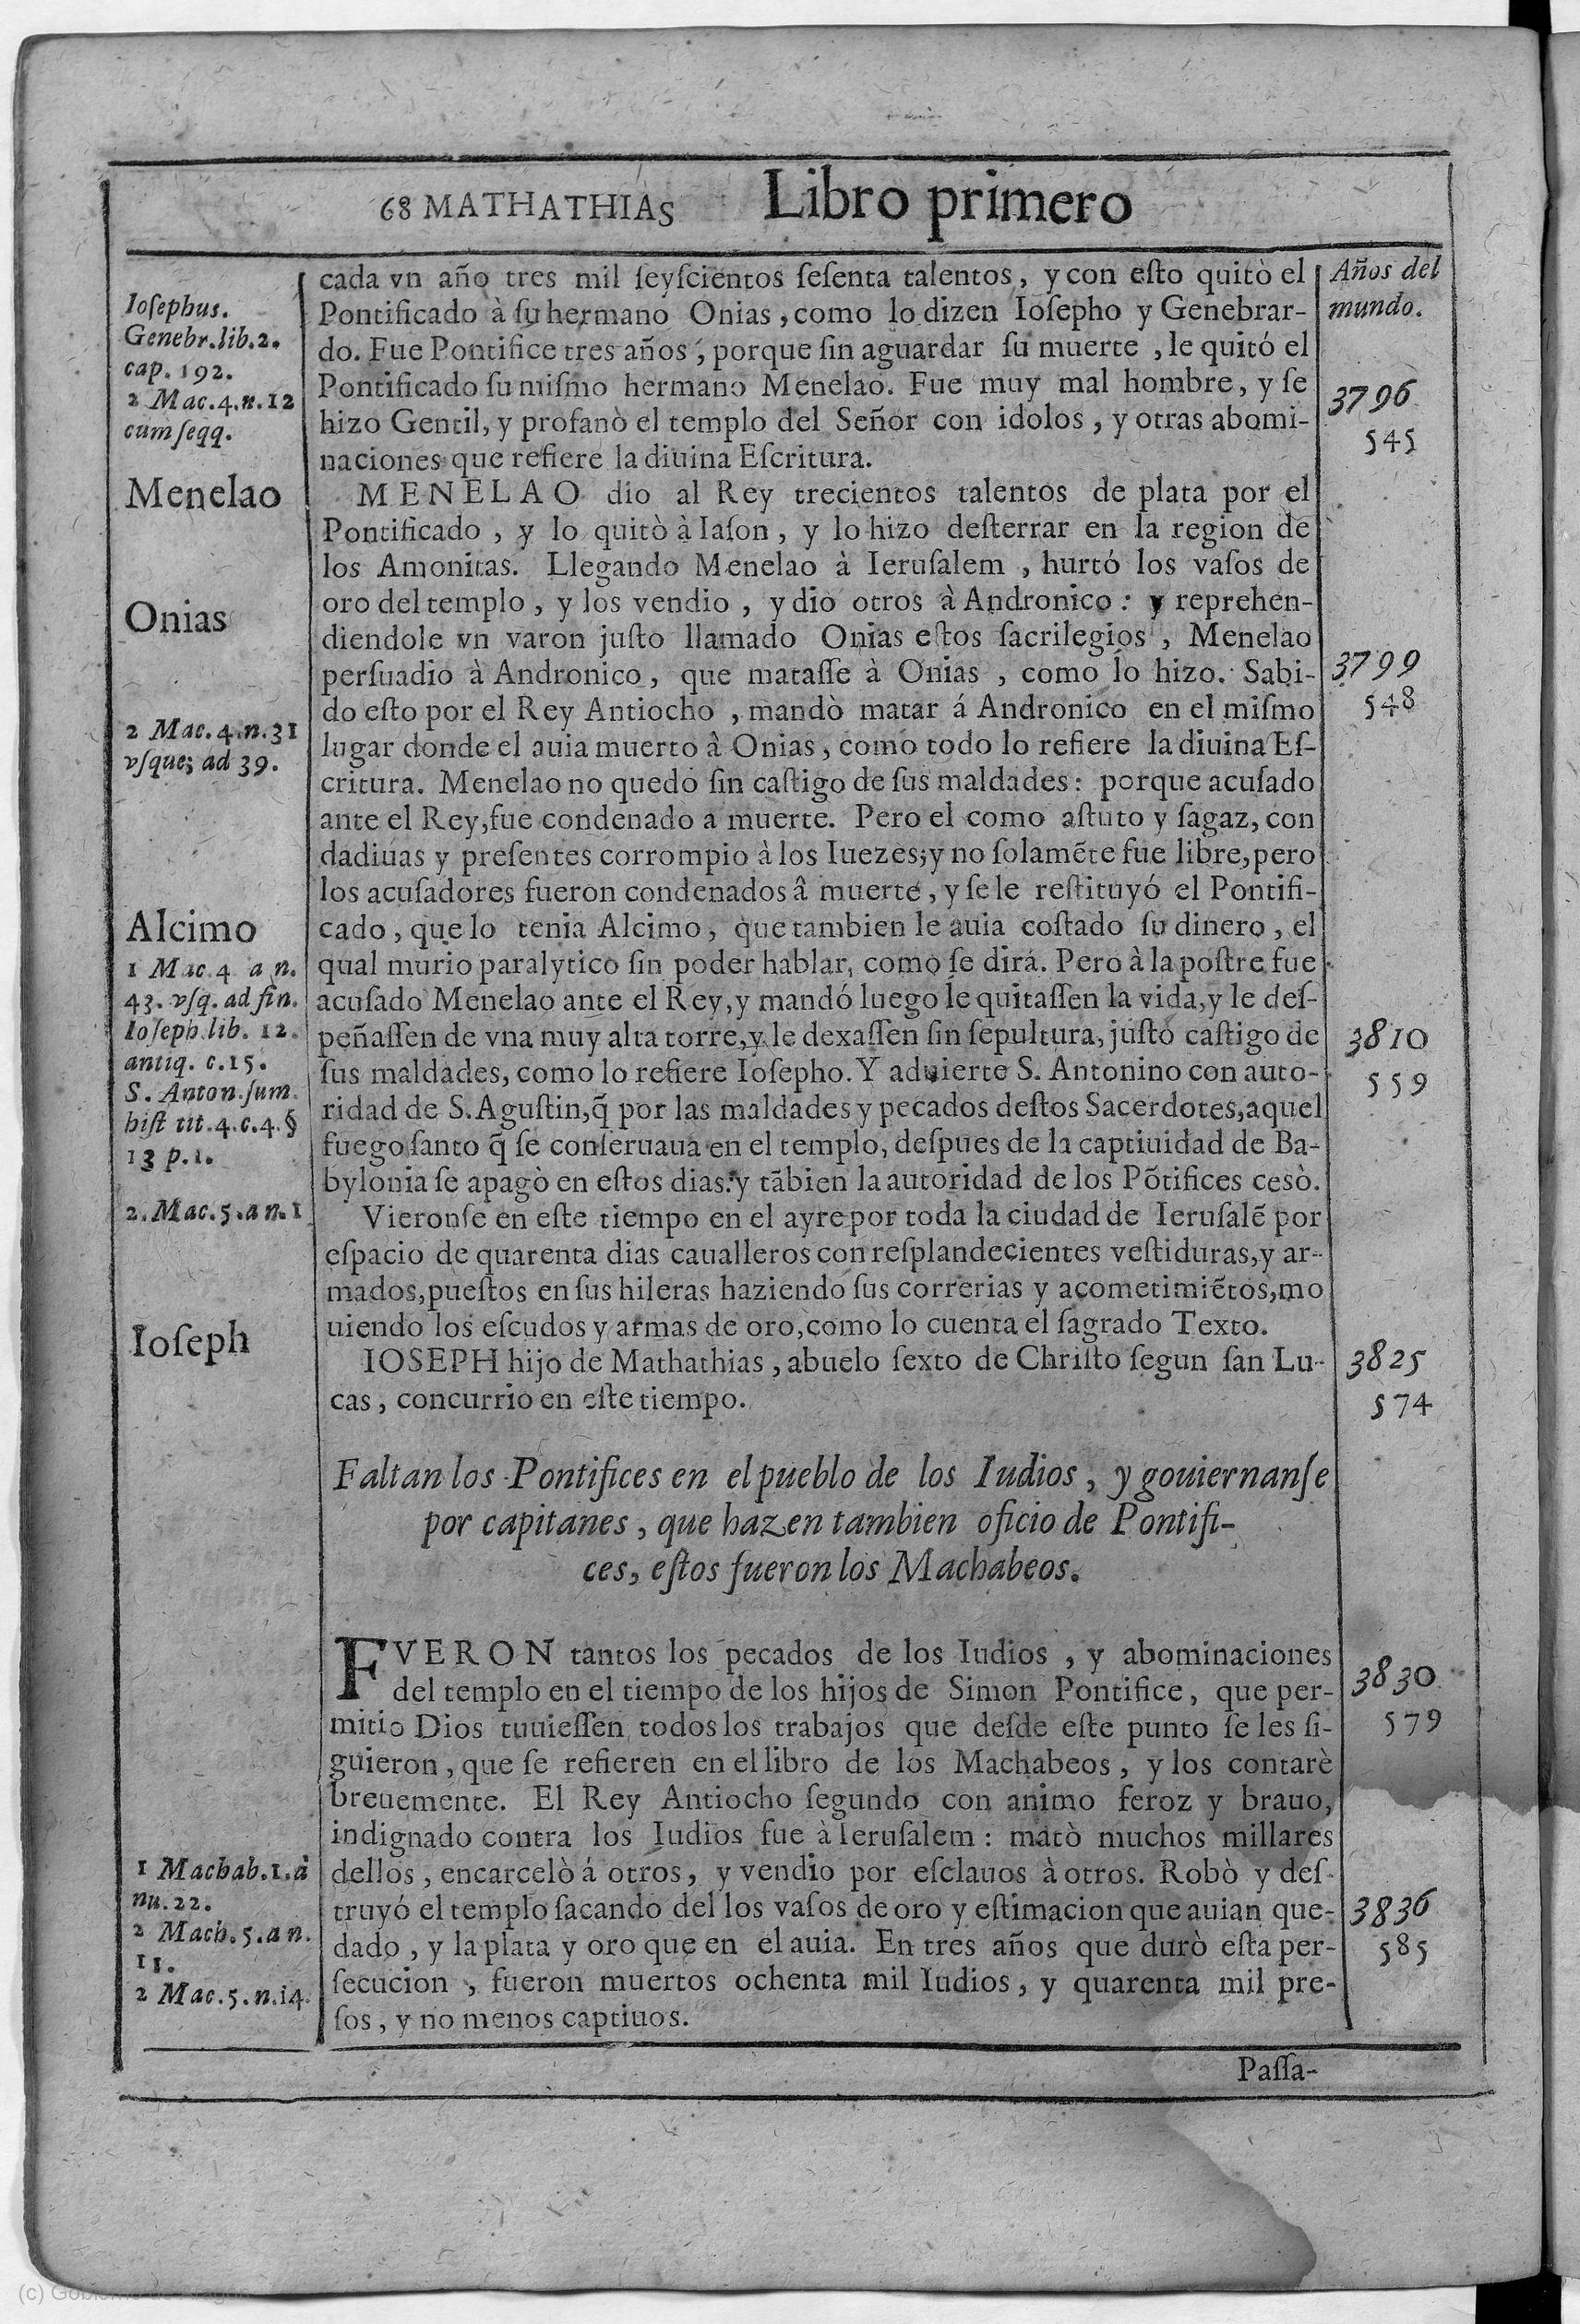 68 MATHATHIAS Libro primero
Años del
mundo.
Ioſephus.
Genebr.lib.2.
cap. 192.
2 Mac.4.n.12
cum ſeqq.
Menelao
Onias
2 Mac.4.n.31
vſque; ad 39.
Alcimo
1 Mac.4 a n.
43. vſq. ad fin.
Ioſeph.lib. 12.
antiq. c.15.
S. Anton.ſum.
hiſt tit.4.c.4.§
13 p.1.
2.Mac.5.a n.1
Ioſeph
1 Machab.1.à
nu.22.
2 Mach.5.a n.
11.
2 Mac.5.n.14.
cada vn año tres mil ſeyſcientos ſeſenta talentos, y con eſto quitò el
Pontificado à ſu hermano Onias, como lo dizen Ioſepho y Genebrar-
do. Fue Pontifice tres años, porque ſin aguardar ſu muerte, le quitó el
Pontificado ſu miſmo hermano Menelao. Fue muy mal hombre, y ſe
hizo Gentil, y profanò el templo del Señor con idolos, y otras abomi-
naciones que refiere la diuina Eſcritura.
MENELAO dio al Rey trecientos talentos de plata por el
Pontificado, y lo quitò à Iaſon, y lo hizo deſterrar en la region de
los Amonitas. Llegando Menelao à Ieruſalem, hurtó los vaſos de
oro del templo, y los vendio, y dio otros à Andronico: y reprehen-
diendole vn varon juſto llamado Onias eſtos ſacrilegios, Menelao
perſuadio à Andronico, que mataſſe à Onias, como lo hizo. Sabi-
do eſto por el Rey Antiocho, mandò matar á Andronico en el miſmo
lugar donde el auia muerto â Onias, como todo lo refiere la diuina Eſ-
critura. Menelao no quedo ſin caſtigo de ſus maldades: porque acuſado
ante el Rey,fue condenado a muerte. Pero el como aſtuto y ſagaz, con
dadiuas y preſentes corrompio à los Iuezes;y no ſolamẽte fue libre,pero
los acuſadores fueron condenados â muerte, y ſe le reſtituyó el Pontifi-
cado, que lo tenia Alcimo, que tambien le auia coſtado ſu dinero, el
qual murio paralytico ſin poder hablar, como ſe dirá. Pero à la poſtre fue
acuſado Menelao ante el Rey,y mandó luego le quitaſſen la vida,y le deſ-
peñaſſen de vna muy alta torre,y le dexaſſen ſin ſepultura, juſto caſtigo de
ſus maldades, como lo refiere Ioſepho. Y aduierte S. Antonino con auto-
ridad de S. Aguſtin,q̃ por las maldades y pecados deſtos Sacerdotes,aquel
fuego ſanto q̃ ſe conſeruaua en el templo, deſpues de la captiuidad de Ba-
bylonia ſe apagò en eſtos dias:y tãbien la autoridad de los Põtifices cesò.
Vieronſe en eſte tiempo en el ayre por toda la ciudad de Ieruſalẽ por
eſpacio de quarenta dias caualleros con reſplandecientes veſtiduras,y ar-
mados,pueſtos en ſus hileras haziendo ſus correrias y acometimiẽtos,mo
uiendo los eſcudos y armas de oro,como lo cuenta el ſagrado Texto.
IOSEPH hijo de Mathathias, abuelo ſexto de Chriſto ſegun ſan Lu-
cas, concurrio en eſte tiempo.
Faltan los Pontifices en el pueblo de los Iudios, y gouiernanſe
por capitanes, que hazen tambien oficio de Pontifi-
ces, eſtos fueron los Machabeos.
FVERON tantos los pecados de los Iudios, y abominaciones
del templo en el tiempo de los hijos de Simon Pontifice, que per-
mitio Dios tuuieſſen todos los trabajos que deſde eſte punto ſe les ſi-
guieron, que ſe refieren en el libro de los Machabeos, y los contarè
breuemente. El Rey Antiocho ſegundo con animo feroz y brauo,
indignado contra los Iudios fue à Ieruſalem: matò muchos millares
dellos, encarcelò á otros, y vendio por eſclauos à otros. Robò y deſ-
truyó el templo ſacando del los vaſos de oro y eſtimacion que auian que-
dado, y la plata y oro que en el auia. En tres años que durò eſta per-
ſecucion, fueron muertos ochenta mil Iudios, y quarenta mil pre-
ſos, y no menos captiuos.
3796
545
3799
548
3810
559
3825
574
3830
579
3836
585
Paſſa-